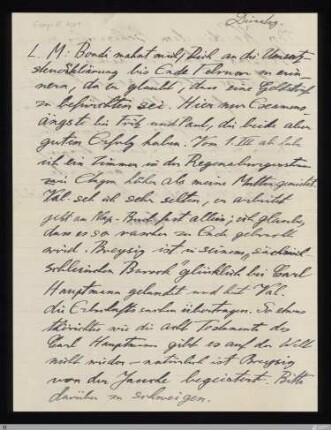 Dienstag.
L. M: Bondi mahnt mich, Dich an die Umsatz-
steuererklärung bis Ende Februar zu erin-
nern, da er glaubt, dass eine Geldstrafe
zu befürchten sei. Hier nur Examens
ängste bei Fritz und Paul, die beide aber
guten Erfolg haben. Vom 1. III ab habe
ich ein Zimmer in der Regensburgerstrasse
höher als meine Mutter gemietet.
Val. seh ich sehr selten, er arbeitet
jetzt am Nap.-Buch fast allein; ich glaube,
dass es so rascher zu Ende gebracht
wird. Breysig ist in seinem "sächsisch-
schlesischen Barock" glücklich bei Carl
Hauptmann gelandet und hat Val.
die übertragen. So etwas
thörichtes wie die acht Testamente des
Carl Hauptmann gibt es auf der Welt
nicht wieder – natürlich ist Breysig
von der begeistert. Bitte
darüber zu schweigen.